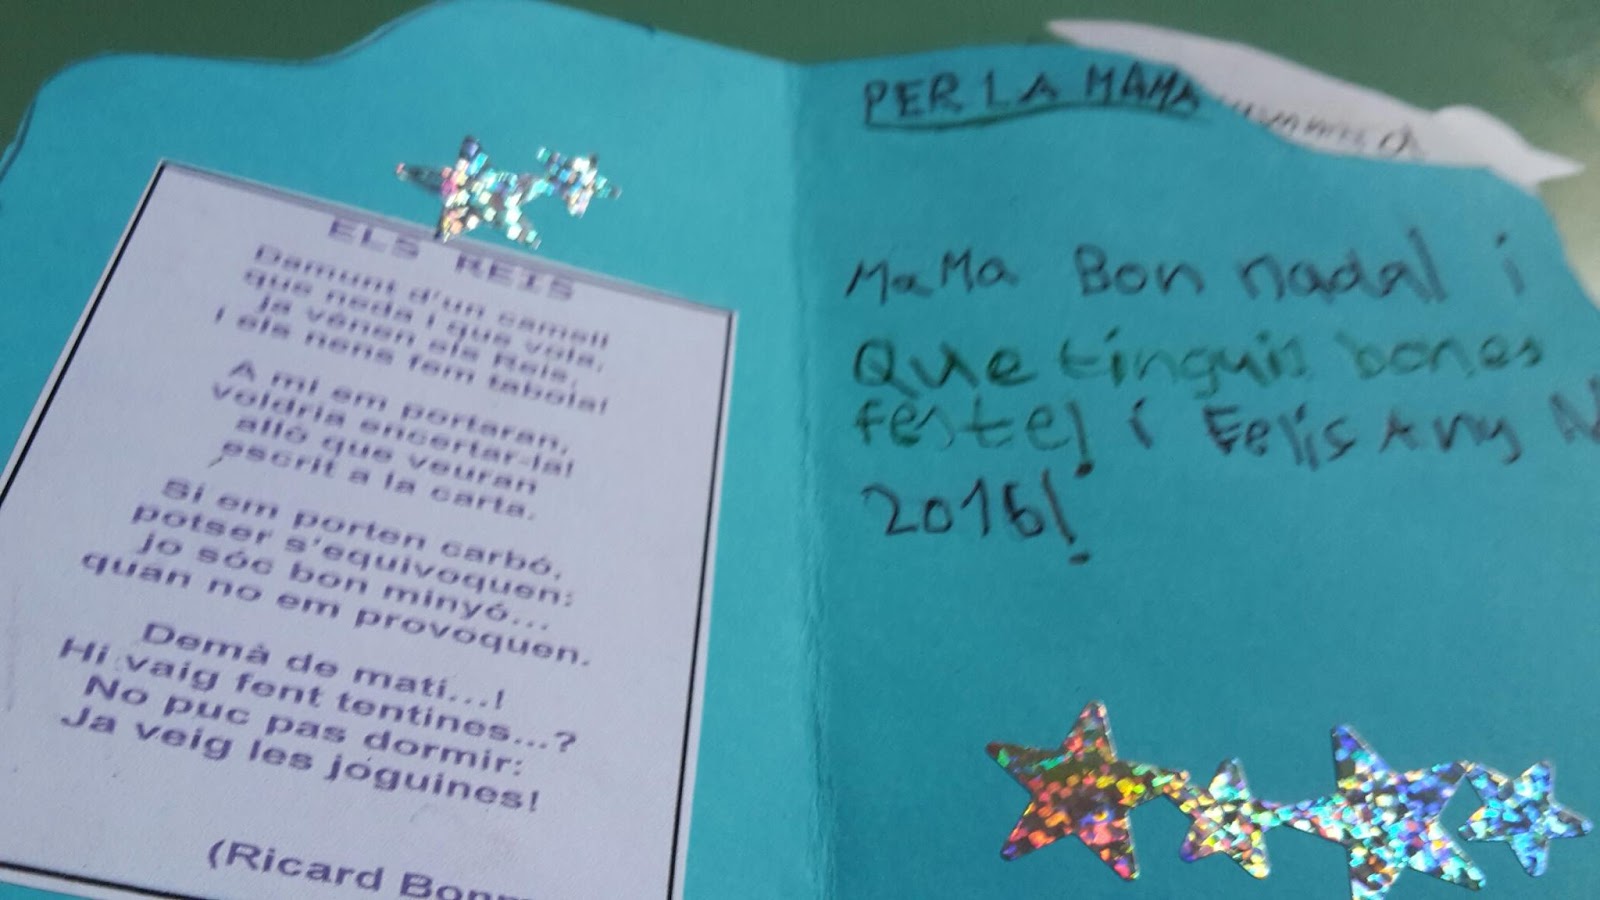 ELS REIS
Damunt d'un camell
que neda i que vola,
ja vénen els Reis,
i els nens fem tabola!
A mi em portaran,
voldria encertar-la!
allò que veuran
escrit a la carta.
Si em porten carbó,
potser s'equivoquen:
jo sóc bon minyó...
quan no em provoquen.
Demà de matí...!
Hi vaig fent tentines...?
No puc pas dormir:
Ja veig les joguines!
(Ricard
PER LA MAMA
MaMa Bon nadal i
Que tinguis bones
festes! i Felis Any
2016!